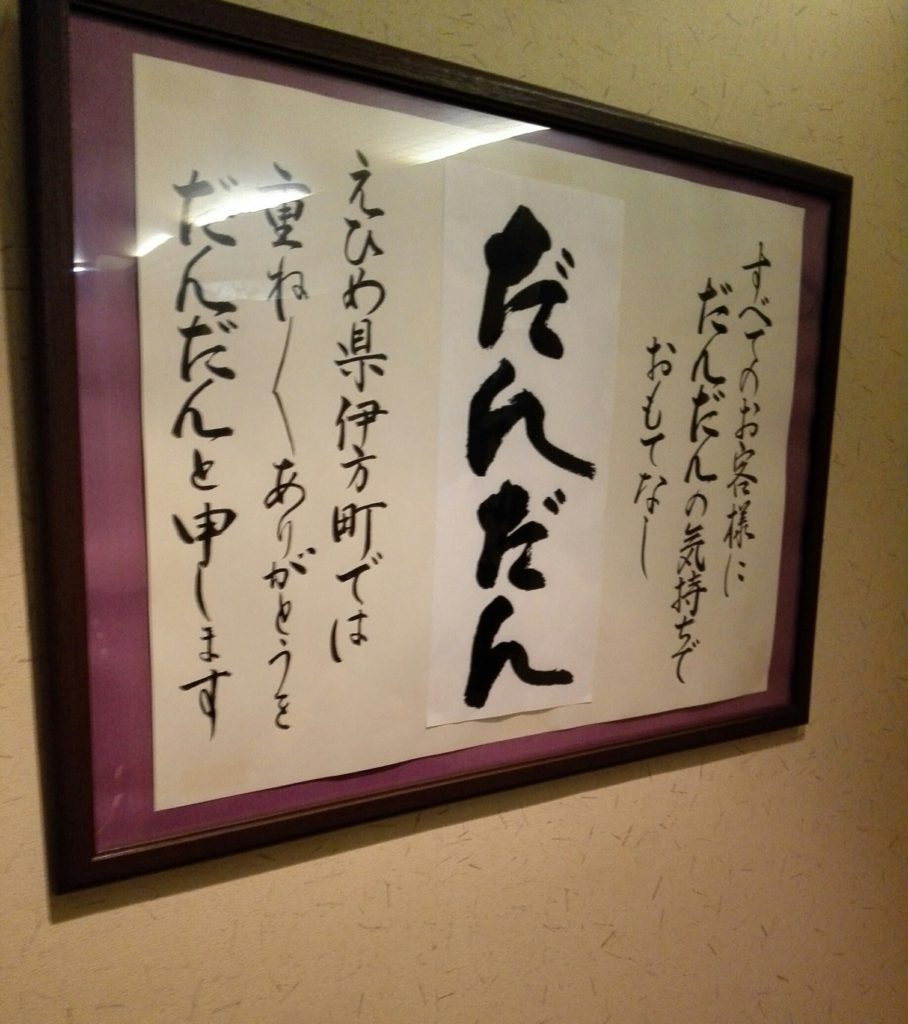 すべてのお客様に
だんだんの気持ちで
おもてなし
だんだん
えひめ県伊方町では
重ね〱ありがとうを
だんだんと申します